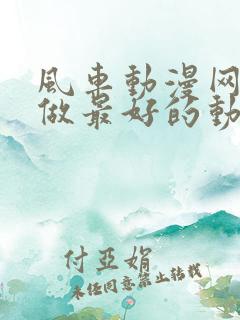 风车動漫网
做最好的動
付亞娟
未经同意禁止转载